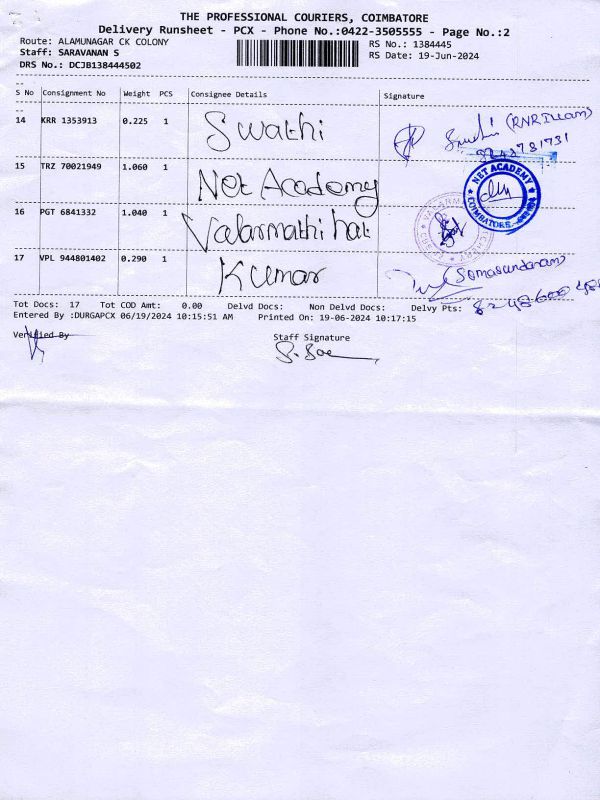 THE PROFESSIONAL COURIERS, COIMBATORE
Delivery Runsheet - PCX - Phone No.:0422-3505555 - Page No.:2
Route: ALAMUNAGAR CK COLONY
RS No.: 1384445
Staff: SARAVANAN S
RS Date: 19-Jun-2024
DRS No.: DCJB138444502
S No Consignment No Weight PCS Consignee Details Signature
14 KRR 1353913 0.225 1 Swathi
15 TRZ 70021949 1.060 1 Net Academy
NET ACADEMY
COIMBATORE
16 PGT 6841332 1.040 1 Valarmathi hat
17 VPL 944801402 0.290 1 Kumar
(Somasundaram)
Tot Docs: 17 Tot COD Amt: 0.00 Delvd Docs: Non Delvd Docs: Delvy Pts:
Entered By :DURGAPCX 06/19/2024 10:15:51 AM Printed On: 19-06-2024 10:17:15
Verified By
Staff Signature